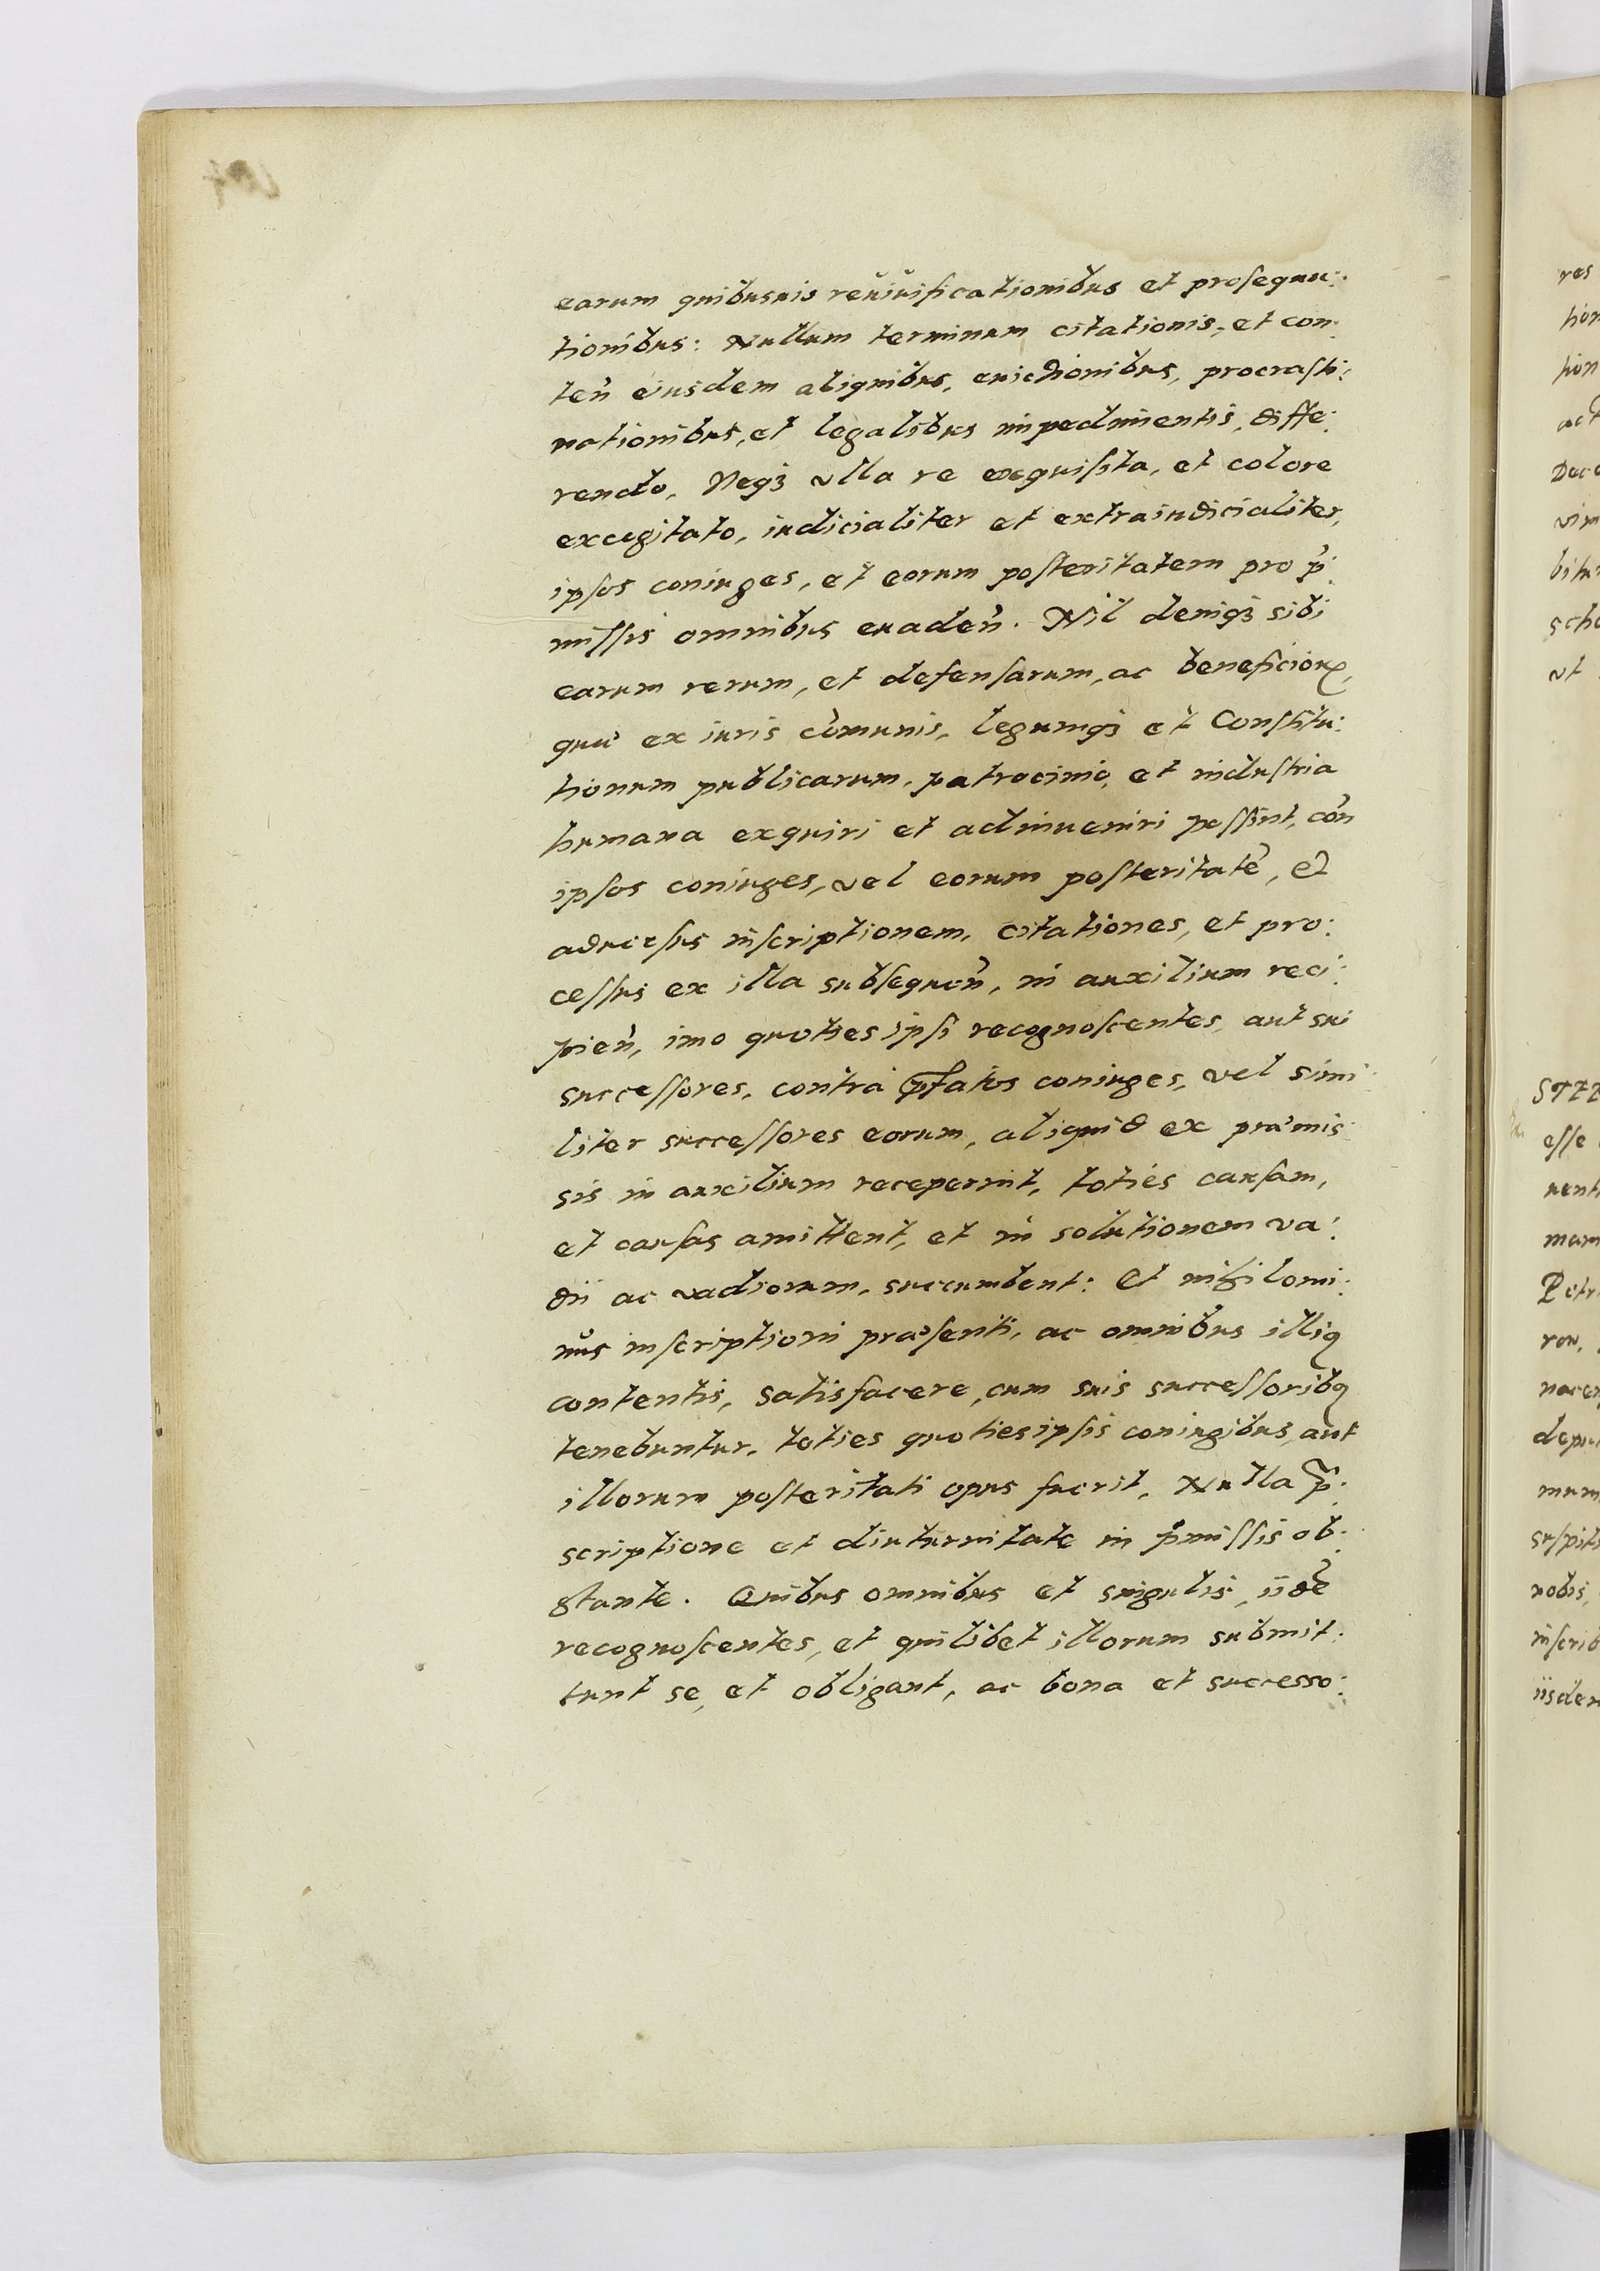 earum quibusuis reuiuificationibus et prosequu:
tionibus: Nullum terminum citationis, et con:
teñ eiusdem aliquibus, euictionibus, procrasti:
nationibus, et legalibus impedimentis, diffe:
rendo, Neqꝫ vlla re exquisita, et colore
excogitato, iudicialiter et extraiudicialiter,
ipsos coniuges, et eorum posteritatem pro p̃:
missis omnibus euadeñ. Nil deniqꝫ sibi
earum rerum, et defensarum, ac beneficioꝝ,
quæ ex iuris cõmunis, legumqꝫ et Constitu:
tionum publicarum, patrocinio, et industria
humana exquiri et adinueniri possint, coñ
ipsos coniuges, vel eorum posteritatẽ, et
aduersus inscriptionem, citationes, et pro:
cessus ex illa subsequeñ, in auxilium reci:
pieñ, imo quoties ipsi recognoscentes, aut sui
successores, contra p̃fatos coniuges, vel simi:
liter successores eorum, aliquid ex præmis:
sis in auxilium receperint, toties causam,
et causas amittent, et in solutionem va:
dii ac vadiorum, succumbent: Et nihilomi:
nus inscriptioni præsenti, ac omnibus illiꝯ
contentis, satisfacere, cum suis successoribꝯ
tenebuntur, toties quoties ipsis coniugibus, aut
illorum posteritati opus fuerit, Nulla p̃:
scriptione et diuturnitate in p̃missis ob:
stante. Quibus omnibus et singulis, iidẽ
recognoscentes, et quilibet illorum submit:
tunt se, et obligant, ac bona et successo: